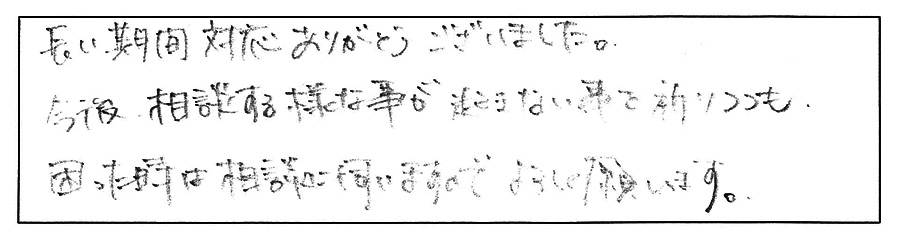 長い期間対応ありがとうございました。
今後、相談する様な事が起きない事を祈りつつも、
困った時は相談に伺いますのでよろしく願います。